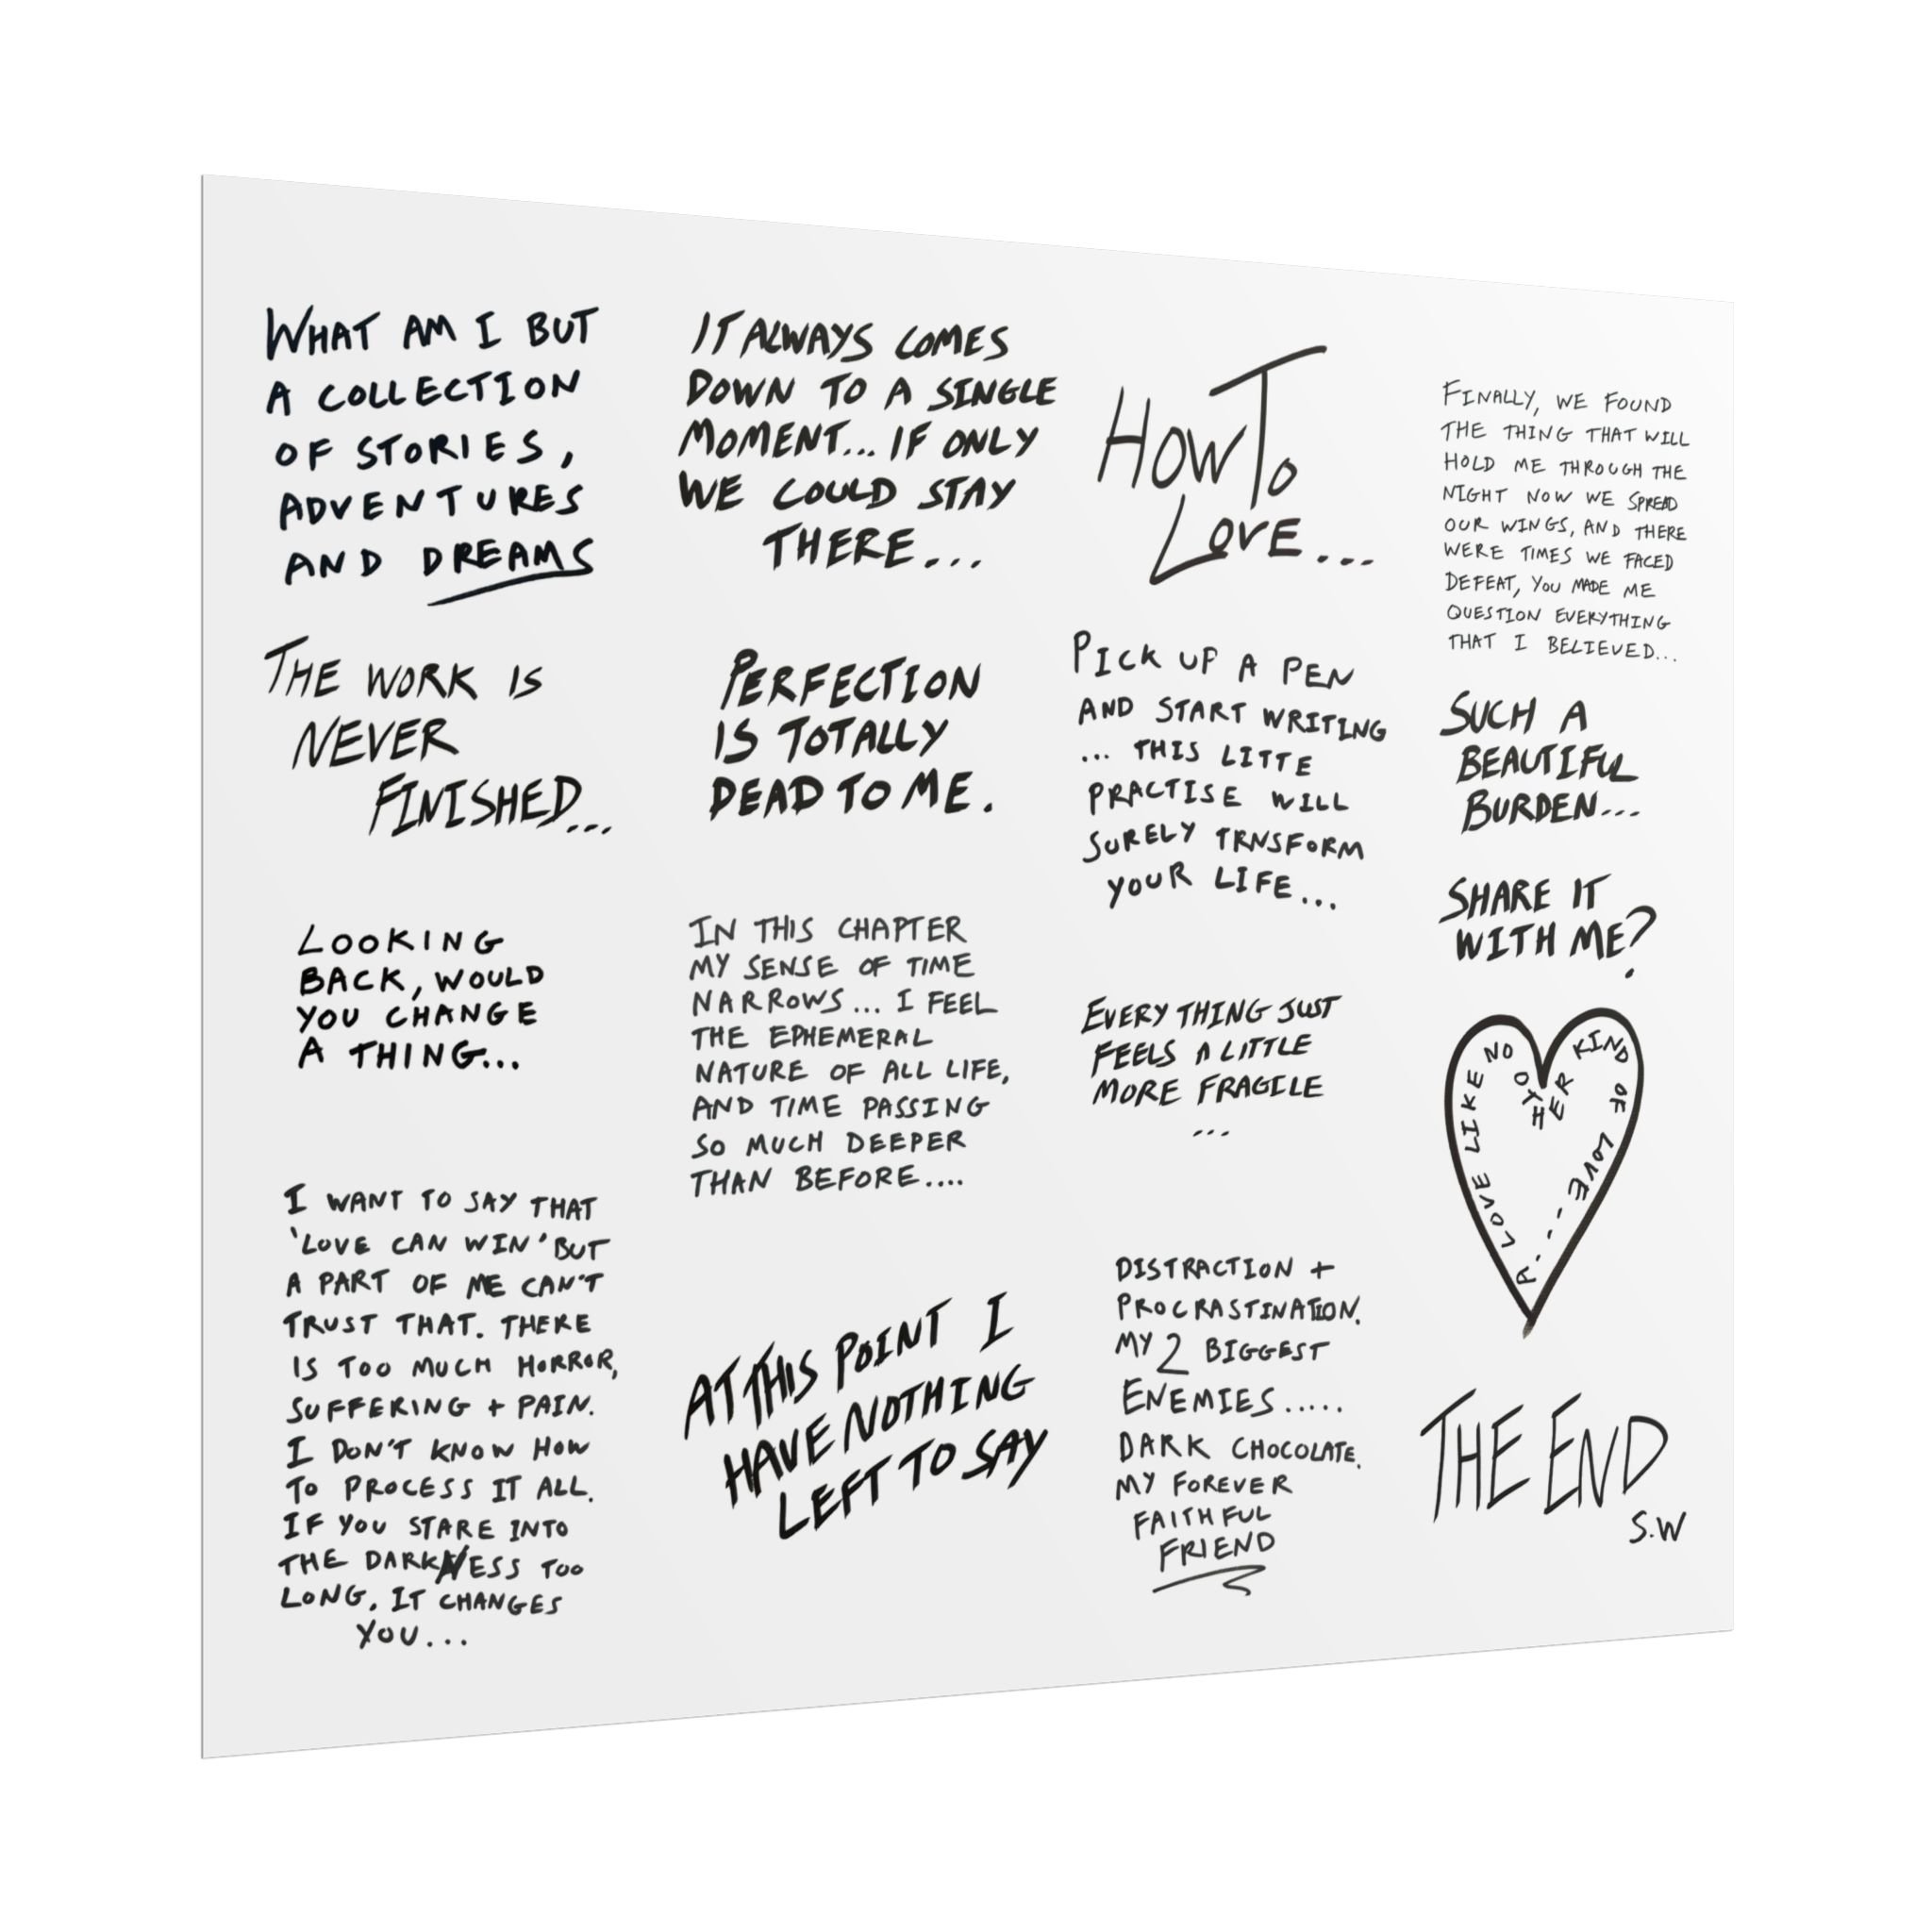 WHAT AM I BUT
A COLLECTION
OF STORIES,
ADVENTURES
AND DREAMS
THE WORK IS
NEVER
FINISHED...
LOOKING
BACK, WOULD
YOU CHANGE
A THING...
I WANT TO SAY THAT
'LOVE CAN WIN' BUT
A PART OF ME CAN'T
TRUST THAT. THERE
IS TOO MUCH HORROR,
SUFFERING + PAIN.
I DON'T KNOW HOW
TO PROCESS IT ALL.
IF YOU STARE INTO
THE DARKNESS TOO
LONG. IT CHANGES
YOU...
IT ALWAYS COMES
DOWN TO A SINGLE
MOMENT... IF ONLY
WE COULD STAY
THERE...
PERFECTION
IS TOTALLY
DEAD TO ME.
IN THIS CHAPTER
MY SENSE OF TIME
NARROWS... I FEEL
THE EPHEMERAL
NATURE OF ALL LIFE,
AND TIME PASSING
SO MUCH DEEPER
THAN BEFORE....
AT THIS POINT I
HAVE NOTHING
LEFT TO SAY
HOW TO
LOVE...
PICK UP A PEN
AND START WRITING
... THIS LITTE
PRACTISE WILL
SURELY TRNSFORM
YOUR LIFE...
EVERY THING JUST
FEELS A LITTLE
MORE FRAGILE
...
DISTRACTION +
PROCRASTINATION.
MY 2 BIGGEST
ENEMIES.....
DARK CHOCOLATE.
MY FOREVER
FAITHFUL
FRIEND
FINALLY, WE FOUND
THE THING THAT WILL
HOLD ME THROUGH THE
NIGHT NOW WE SPREAD
OUR WINGS, AND THERE
WERE TIMES WE FACED
DEFEAT, YOU MADE ME
QUESTION EVERYTHING
THAT I BELIEVED...
SUCH A
BEAUTIFUL
BURDEN...
SHARE IT
WITH ME?
A LOVE LIKE NO OTHER KIND OF LOVE....
THE END
S.W